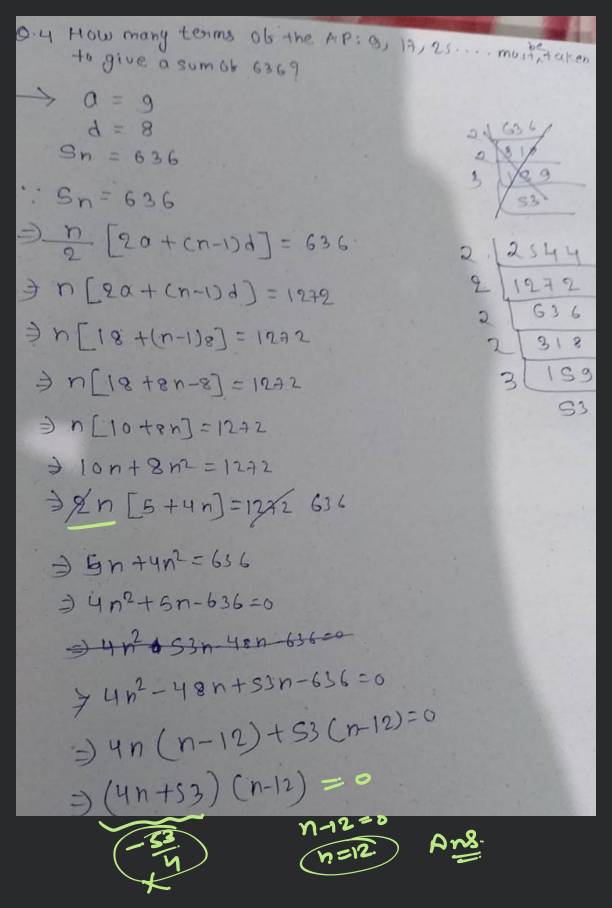 Q.4 How many terms ob the AP: 9, 17, 25.... must be taken
to give a sum ob 636?
→ a = 9
d = 8
Sn = 636
∵ Sn = 636
⇒ n/2 [2a + (n-1)d] = 636
⇒ n[2a + (n-1)d] = 1272
⇒ n[18 + (n-1)8] = 1272
⇒ n[18 + 8n - 8] = 1272
⇒ n[10 + 8n] = 1272
⇒ 10n + 8n² = 1272
⇒ 2n [5 + 4n] = 1272 636
⇒ 5n + 4n² = 636
⇒ 4n² + 5n - 636 = 0
⇒ 4n² 53n - 48n - 636 = 0
⇒ 4n² - 48n + 53n - 636 = 0
⇒ 4n (n-12) + 53 (n-12) = 0
⇒ (4n + 53) (n-12) = 0
-53/4
×
n-12=0
n=12
Ans.
2 636
2 318
3 159
53
2 2544
2 1272
2 636
2 318
3 159
53